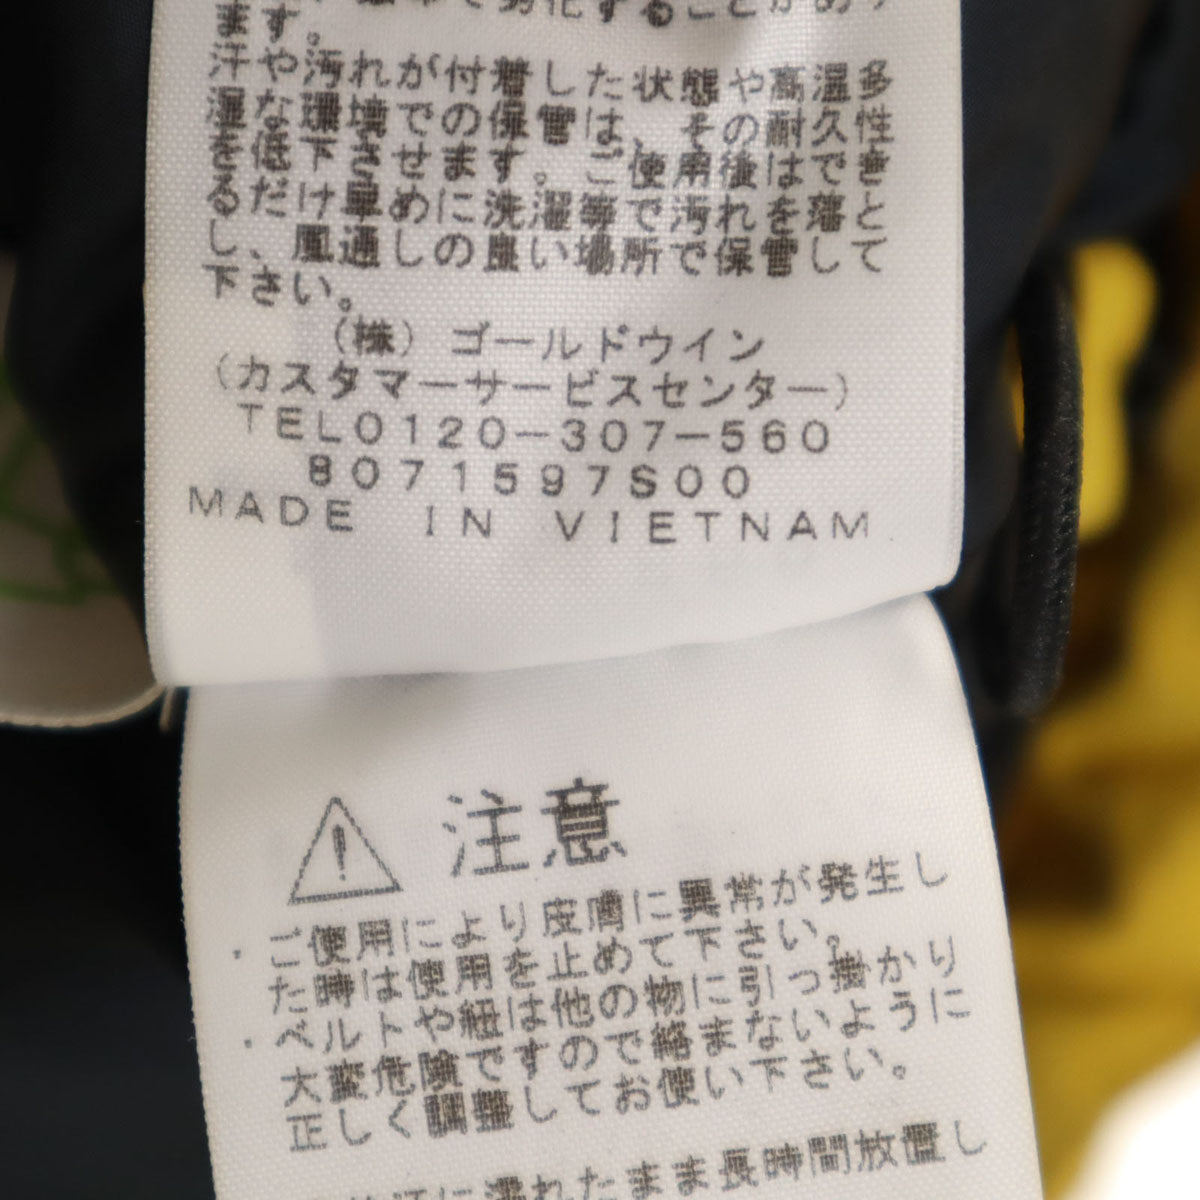 劣化することがあり
ます。
汗や汚れが付着した状態や高温多
湿な環境での保管は、その耐久性
を低下させます。ご使用後はでき
るだけ早めに洗濯等で汚れを落と
し、風通しの良い場所で保管して
下さい。
（株）ゴールドウイン
（カスタマーサービスセンター）
TEL0120-307-560
8071597S00
MADE IN VIETNAM
注意
・ご使用により皮膚に異常が発生し
た時は使用を止めて下さい。
・ベルトや紐は他の物に引っ掛かり
大変危険ですので絡まないように
正しく調整してお使い下さい。
に濡れたまま長時間放置し